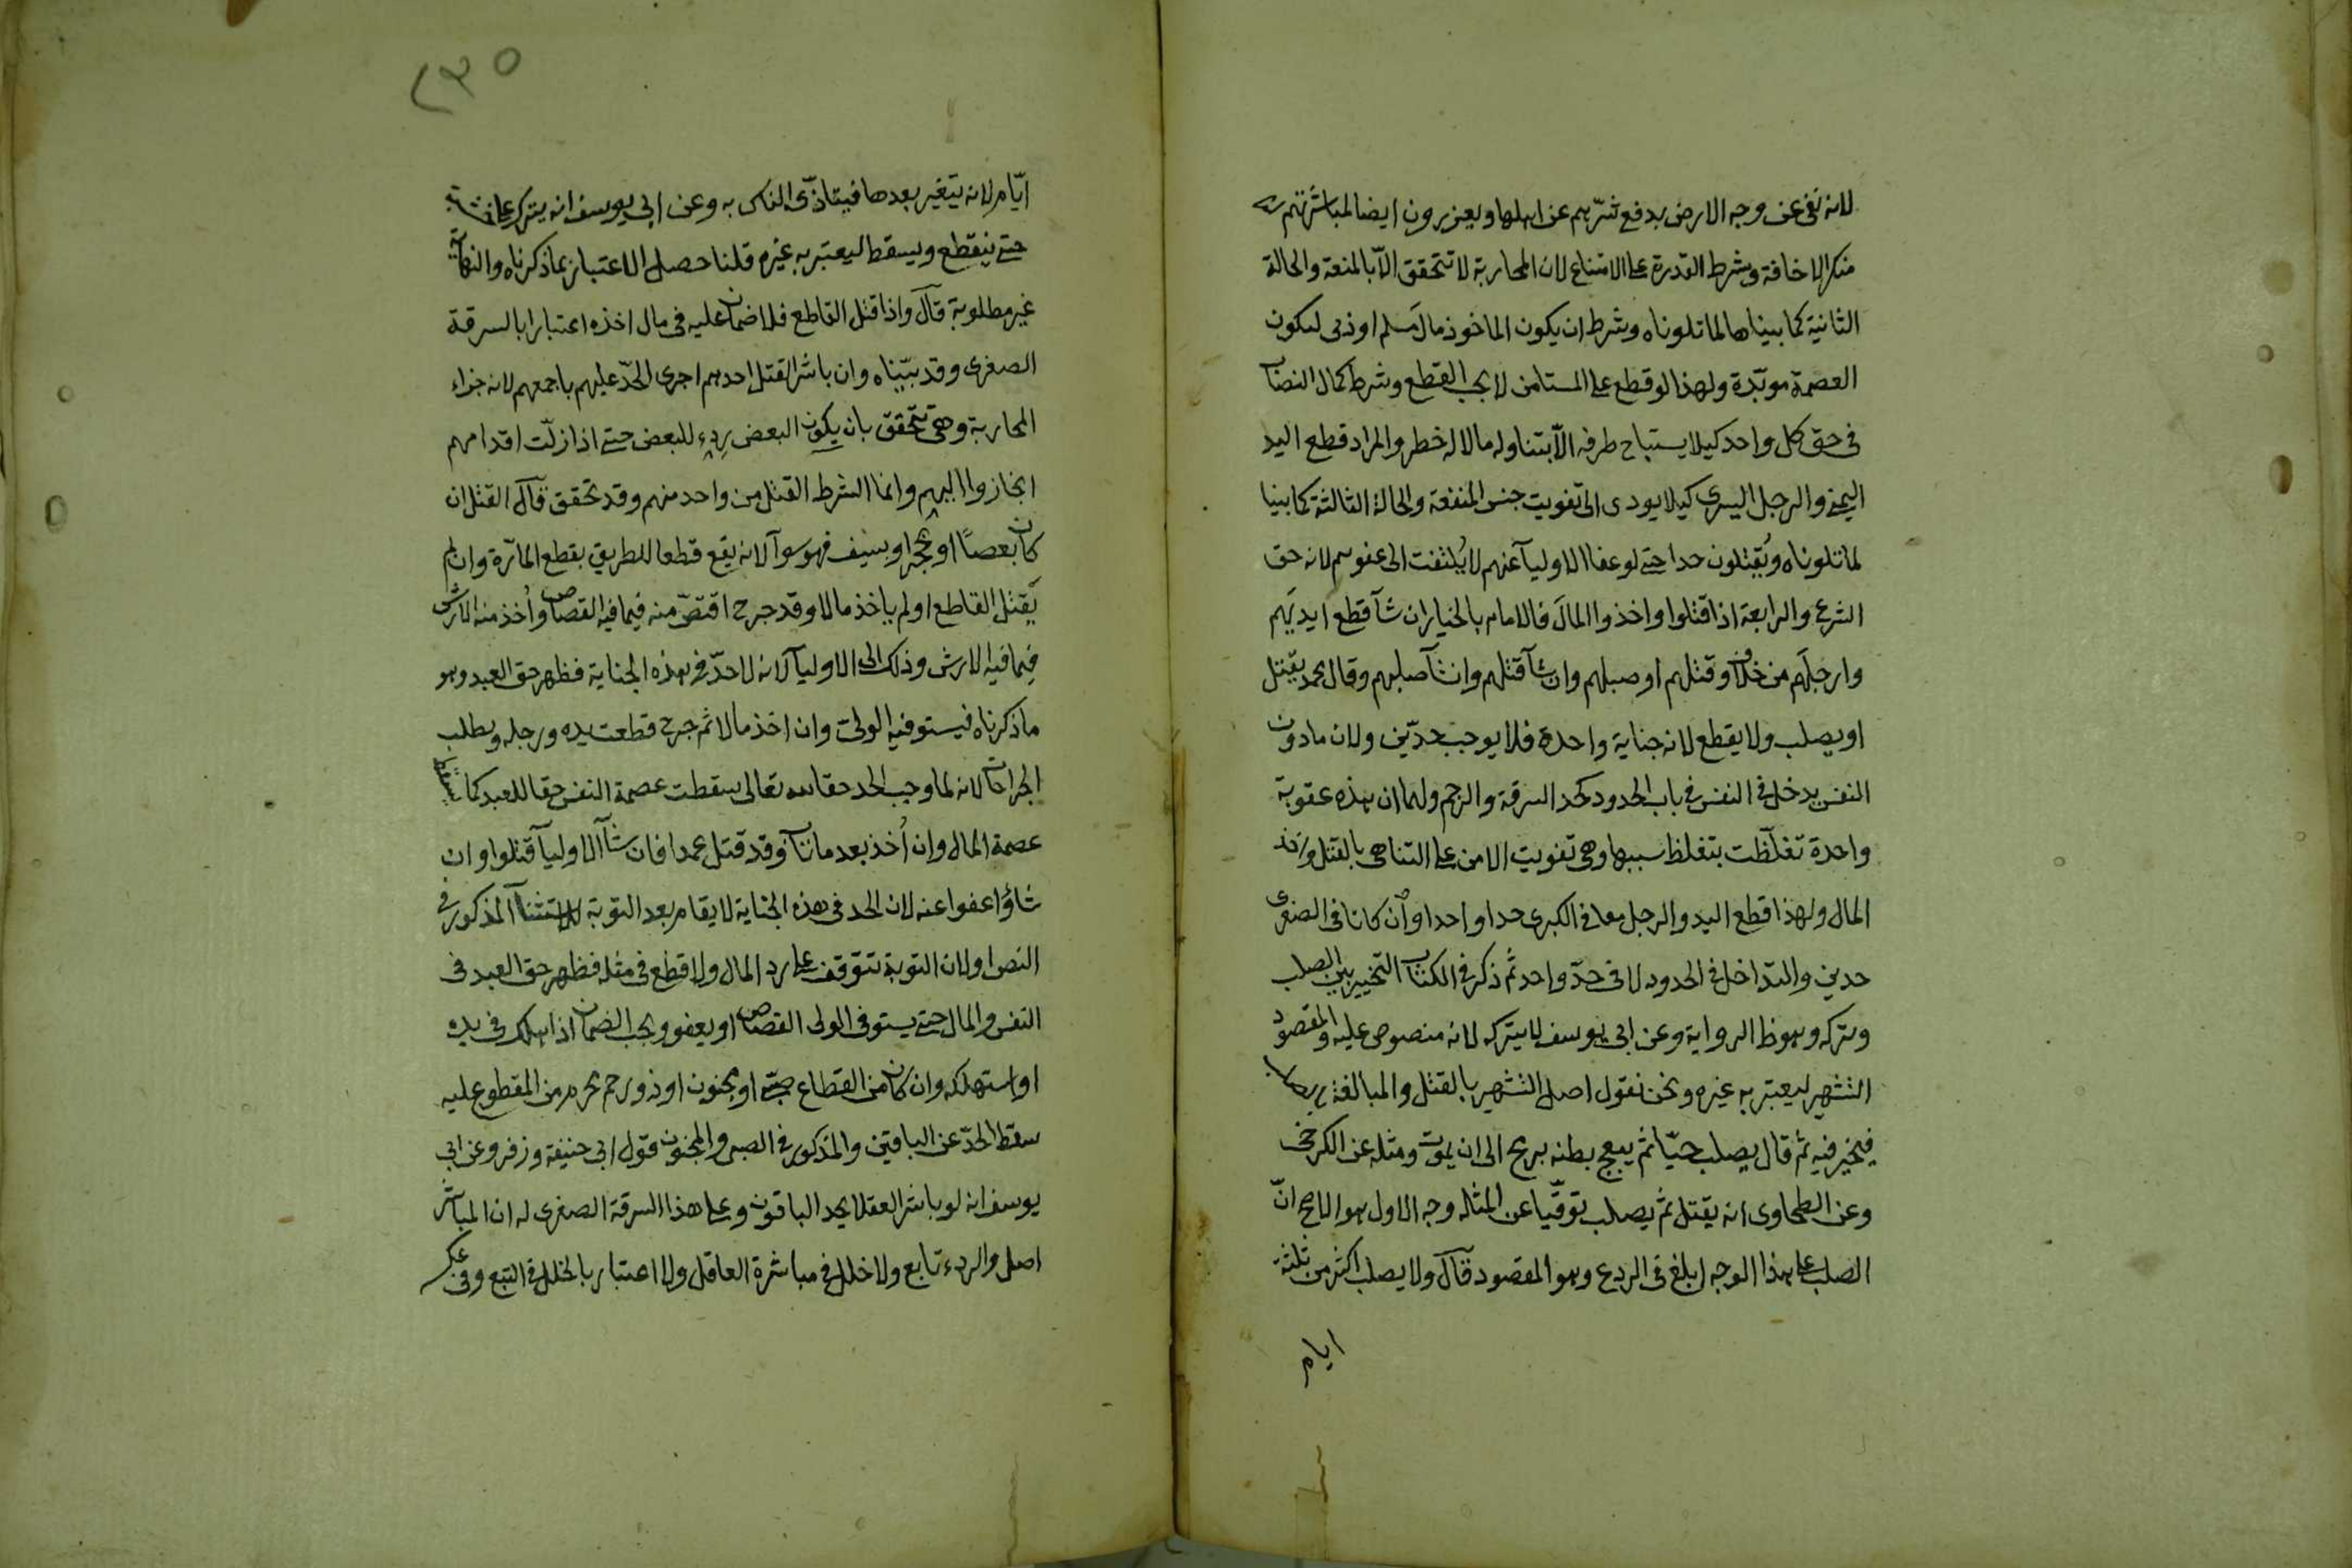 لانه نفى عن وجه الارض بدفع شرّهم عن اهلها ويعزرون ايضا لمباشرتهم
منكر الاخافة وشرط القدرة على الامتناع لان المحاربة لا تتحقق الّا بالمنعة والحالة
الثانية كما بيناها لما تلوناه وشرط ان يكون الماخوذ مال مسلم او ذمى لتكون
العصمة موبّدة ولهذا لو قطع على المستامن لا يجب القطع وشرط كمال النصاب
فى حق كل واحد كيلا يستباح طرفه الّا بتناوله ما لاله خطر والمراد قطع اليد
اليمنى والرجل اليسرى كيلا يودى الى تفويت جنس المنفعة والحالة الثالثة كما بينا
لما تلوناه ويُقتلون حدا حتى لو عفا الاوليآ عنهم لا يُلتفت الى عفوهم لانه حق
الشرع والرابعة اذا قتلوا واخذوا المال فالامام بالخيار ان شآ قطع ايديَهم
وارجلَهم من خلاف وقتلهم او صبلهم وان شآ قتلهم وان شآ صلبهم وقال محمد يقتل
او يصلب ولا يقطع لانه جناية واحدة فلا يوجب حدّين ولان ما دون
النفس يدخل فى النفس فى باب الحدود كحد السرقة والرجم ولهما ان هذه عقوبة
واحدة تغلّظت بتغلظ سببها وهى تفويت الامن على التناهى بالقتل واخذ
المال ولهذا قطع اليد والرجل معا فى الكبرى حدا واحدا وان كانا فى الصغرى
حدين والتداخل فى الحدود لا فى حدّ واحد ثم ذكر فى الكتاب التخيير بين الصلب
وتركه وهو ظ الرواية وعن ابى يوسف لا يتركه لانه منصوص عليه والمقصود
التشهير ليعتبر به غيره ونحن نقول اصل التشهير بالقتل والمبالغة بالصلب
فيخير فيه ثم قال يصلب حيّا ثم يبعج بطنه برمح الى ان يموت ومثله عن الكرخى
وعن الطحاوى انه يقتل ثم يصلب توقّيا عن المثله وجه الاول هو الاصح انّ
الصلب على هذا الوجه ابلغ فى الردع وهو المقصود قال ولا يصلب اكثر من ثلثة
ايام
٢٣٥
ايّام لانه يتغير بعدها فيتاذّى الناس به وعن ابى يوسف انه يترك على خشبة
حتى ينقطع ويسقط ليعتبر به غيره قلنا حصل الاعتبار بما ذكرناه والنهاية
غير مطلوبة قال واذا قتل القاطع فلا ضمان عليه فى مال اخذه اعتبارا بالسرقة
الصغرى وقد بيّناه وان باشر القتل احدهم اجرى الحدّ عليهم باجمعهم لانه جزاء
المحاربة وهى تتحقق بان يكون البعض ردء للبعض حتى اذا زلّت اقدامهم
انحازوا اليهم وانما الشرط القتل من واحد منهم وقد تحقق قال القتل ان
كان بعصًا او بحجر او بسيف فهو سوآ لانه يقع قطعا للطريق بقطع المآرة وان لم
يَقتل القاطع او لم ياخذ مالا وقد جرح اقتصّ منه فيما فيه القصاص واُخذ منه الارش
فيما فيه الارش وذلك الى الاوليآ لانه لا حدّ فى هذه الجناية فظهر حق العبد وهو
ما ذكرناه فيستوفيه الولى وان اخذ مالا ثم جرح قطعت يده ورجله وبطلب
الجراحات لانه لما وجب الحد حقا لله تعالى سقطت عصمة النفس حقا للعبد كما يسقط
عصمة المال وان اُخذ بعد ما تاب وقد قتل عمدا فان شآ الاوليآ قتلوا وان
شاؤا عفوا عنه لان الحد فى هذه الجناية لا يقام بعد التوبة للاستثنآ المذكور فى
النص ولان التوبة تتوقف على رد المال ولا قطع فى مثله فظهر حق العبد فى
النفس والمال حتى يستوفى الولى القصاص او يعفو ويجب الضمان اذا هلك فى يده
او استهلكه وان كان من القطاع صبى او مجنون او ذو رحم محرم من المقطوع عليه
سقط الحدّ عن الباقين والمذكور فى الصبى والمجنون قول ابى حنيفة وزفر وعن ابى
يوسف انه لو باشر العقلا يحد الباقون وعلى هذا السرقة الصغرى له ان المباشر
اصل والردء تابع ولا خلل فى مباشرة العاقل ولا اعتبار بالخلل فى التبع وفى عكسه